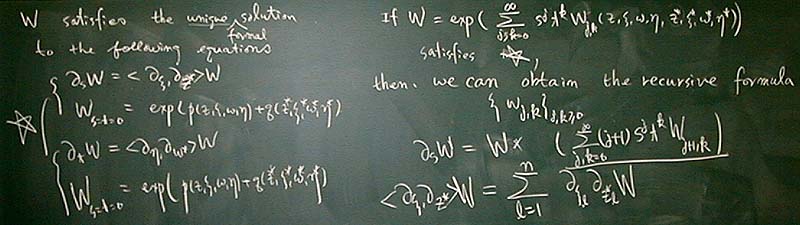 W satisfies the unique solution
formal
to the following equations
∂ₛW = <∂_ξ, ∂_z*>W
W_{s=t=0} = exp(p(z,ξ,ω,η)+q(z*,ξ*,ω*,η*))
☆
∂ₜW = <∂_η, ∂_w*>W
W_{s=t=0} = exp(p(z,ξ,ω,η)+q(z*,ξ*,ω*,η*))
If W = exp( ∑_{j,k=0}^∞ s^j t^k W_{j,k}(z,ξ,ω,η,z*,ξ*,ω*,η*))
satisfies ☆,
then. we can obtain the recursive formula
{W_{j,k}}_{j,k≥0}
∂ₛW = W × ( ∑_{j,k=0}^∞ (j+1) s^j t^k W_{j+1,k} )
<∂_ξ, ∂_z*>W = ∑_{l=1}^n ∂_{ξ_l} ∂_{z*_l} W